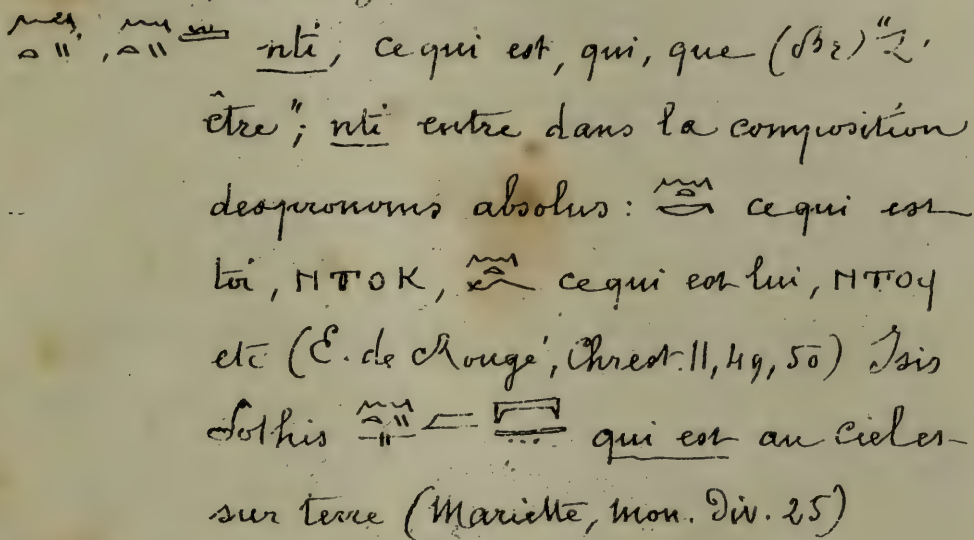 𓈖𓏏𓏭, 𓈖𓏏𓏭𓏛 nti, ce qui est, qui, que (Br) "
être"; nti entre dans la composition
des pronoms absolus: 𓈖𓏏𓎡 ce qui est
toi, ⲚⲦⲞⲔ, 𓈖𓏏𓆑 ce qui est lui, ⲚⲦⲞϤ
etc (E. de Rougé, Chrest. II, 49, 50) Isis
Sothis qui est au ciel et
sur terre (Mariette, Mon. Div. 25)